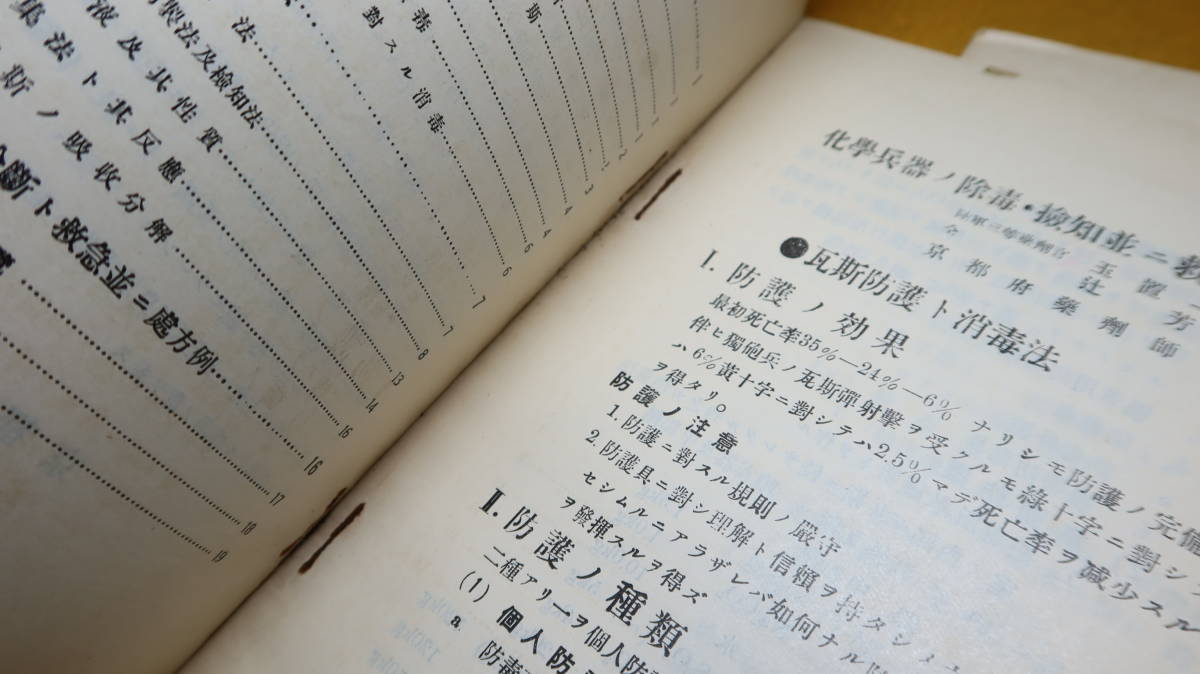 斯
毒
對スル消毒
法
製法及檢知法
液及其性質
集法ト其反應
斯ノ吸收分解
斷ト救急並ニ處方例
1
1
1
2
3
4
4
5
6
6
7
7
8
13
14
16
16
17
18
19
化學兵器ノ除毒・檢知並ニ救
陸軍三等藥劑官 玉置
仝 辻 芳
京都府藥劑師
●瓦斯防護ト消毒法
I. 防護ノ効果
最初死亡率35%—24%—6%ナリシモ防護ノ完備
件ヒ獨砲兵ノ瓦斯彈射擊ヲ受クルモ綠十字ニ對シ
ハ6%黃十字ニ對シテハ2.5%マデ死亡率ヲ減少スル
ヲ得タリ。
防護ノ注意
1. 防護ニ對スル規則ノ嚴守
2. 防護具ニ對シ理解ト信賴ヲ持タシメ
セシムルニアラザレバ如何ナル
ヲ發揮スルヲ得ズ
II. 防護ノ種類
二種アリ一ヲ個人防
(1) 個人防
a.
防毒